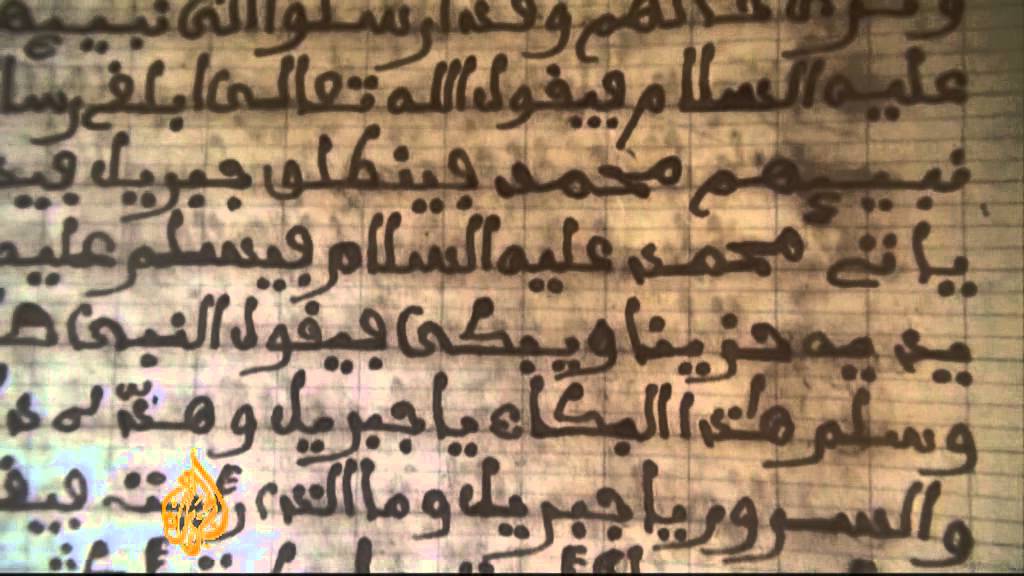 حالهم وقد ارسلوا الى نبيهم
عليه السلام فيقول الله تعالى ابلغ رسا
نبيهم محمد فينطلق جبريل
ياتي محمد عليه السلام فيسلم عليه
يديه حزينا ويبكى فيقول النبى
وسلم هذا البكاء يا جبريل
والسرور يا جبريل وما الذي رأيته